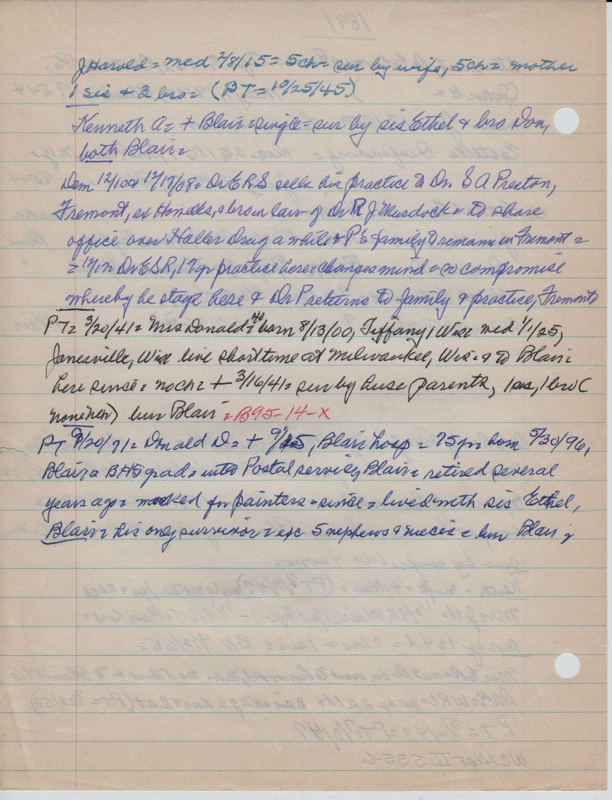 J Harold = med 7/8/15 = 5ch = sur by wife, 5ch = mother
1 sis & 2 bro = (PT = 10/25/45)
Kenneth A = + Blair = single = sur by sis Ethel & bro Don,
both Blair =
Dem 12/10 & 12/17/08 = Dr E R S sells his practice to Dr. S A Preston,
Fremont, ex Honda, & bro in law of Dr R J Murdock = to share
office over Haller Drug a while & P's family to remain in Fremont =
= 12/17 = Dr E S R, 17 yr practice here = changes mind = so compromise
whereby he stays here & Dr P returns to family & practice, Fremont
PT = 3/20/41 = Mrs Donald = born 8/13/00, Tiffany, Wisc med 1/1/25,
Janesville, Wisc live short time at Milwaukee, Wis = & to Blair =
here since = no ch = + 3/16/41 = sur by husc parents, 1 sis, 1 bro (
none here) bur Blair = B95-14-X
PT 9/20/71 = Donald D = + 9/15, Blair hosp = 75 yr born 5/30/96,
Blair = BHS grad = with Postal service, Blair = retired several
years ago = worked for painters = since = lived with sis Ethel,
Blair = his only survivor = exc 5 nephews & nieces = bur Blair